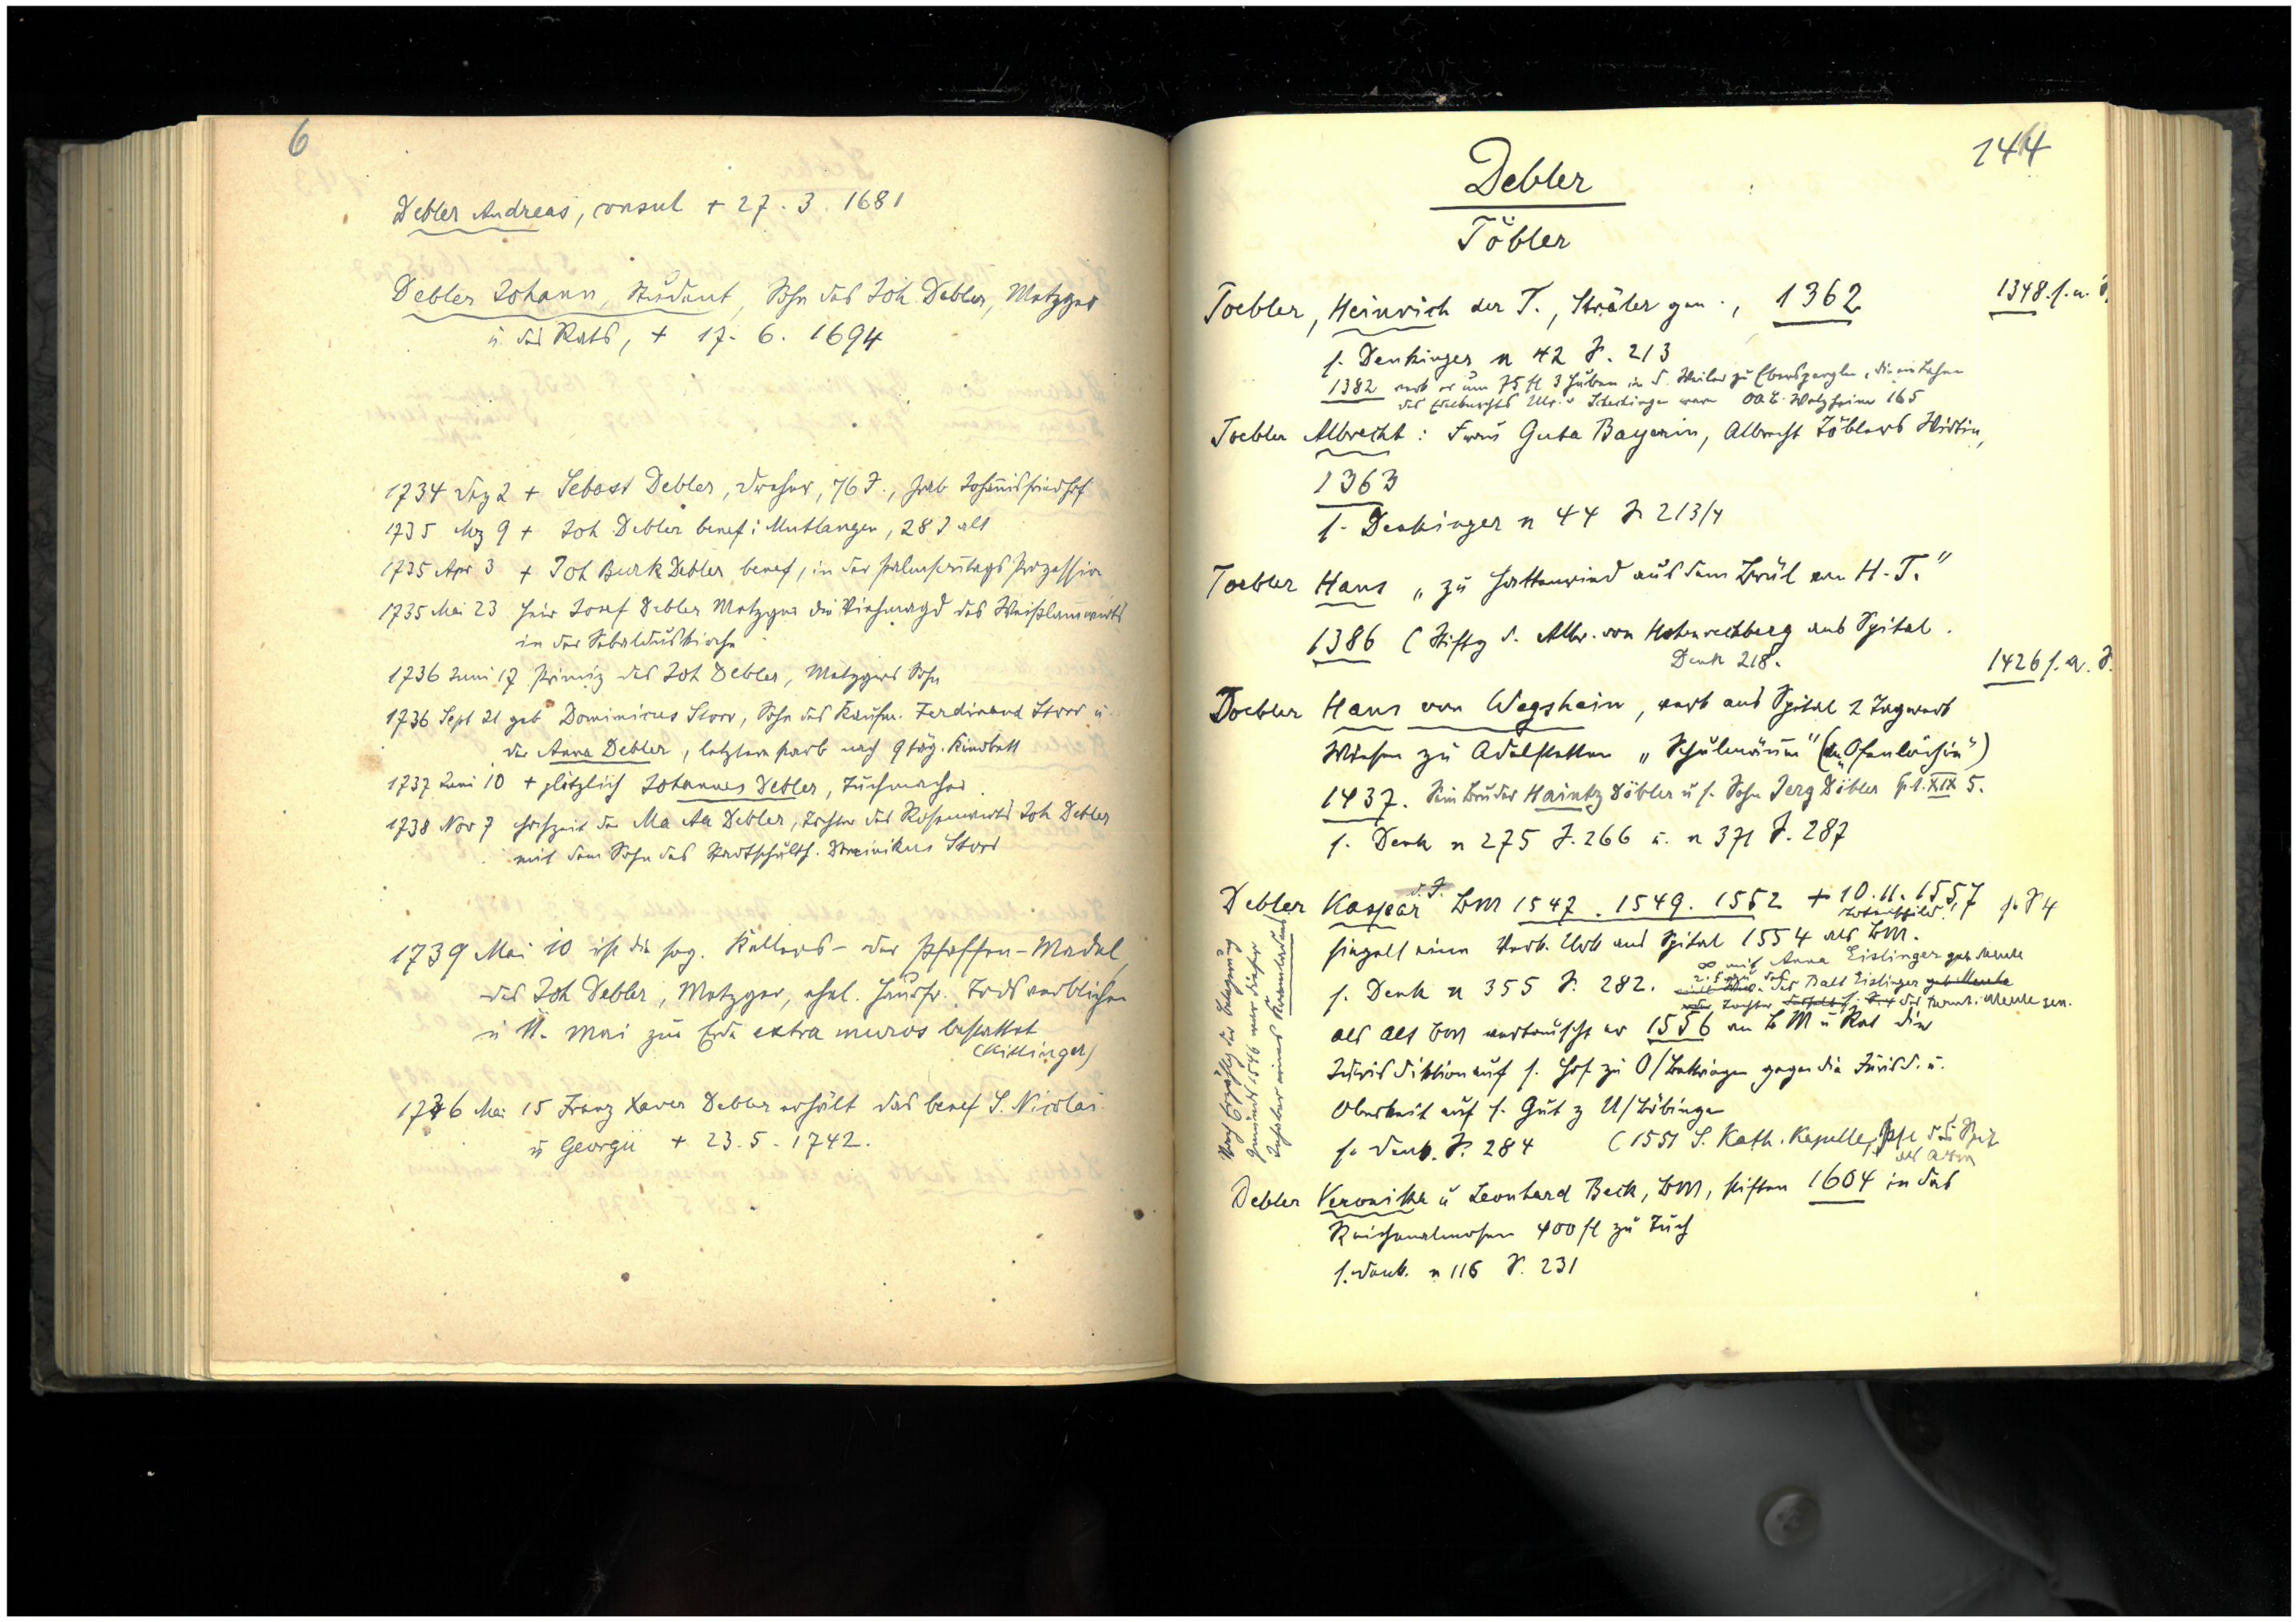 6
Debler Andreas, consul + 27. 3. 1681
Debler Johann, Student, Sohn des Joh. Debler, Metzger
u. des Rats, + 17. 6. 1694
1734 Dez 2 + Sebast Debler, Dreher, 76 J., Grab Johannisfriedhof
1735 Mz 9 + Joh Debler benef: Mutlangen, 28 J alt
1735 Apr 3 + Joh Burk Debler benef, in der Palmsontags Prozession
1735 Mai 23 Heir Josef Debler Metzger die Viehmagd des Weißlammwirts
in der Sebalduskirche
1736 Juni 17 Primiz des Joh Debler, Metzgers Sohn
1736 Sept 21 geb Dominicus Storr, Sohn des Kaufm. Ferdinand Storr u.
der Anna Debler, letztere starb nach 9 täg. Kindbett
1737 Juni 10 + plötzlich Johannes Debler, Tuchmacher
1738 Nov 7 Hochzeit der Ma Aa Debler, Tochter des Rosenwirts Joh Debler
mit dem Sohn des Stadtschulth. Dominikus Storr
1739 Mai 10 ist die sog. Kellers- oder Pfaffen-Madel,
des Joh Debler, Metzger, ehel. Hausfr. Tods verblichen
u 11. Mai zur Erde extra muros bestattet
(Killinger)
1736 Mai 15 Franz Xaver Debler erhält das benef S. Nicolai
u Georgii + 23. 5. 1742.
144
Debler
Töbler
Toebler, Heinrich der T., Sträler gen., 1362 1348. s. a. S.
s. Denkinger n 42 S. 213
1382 verk er um 75 fl 3 Huben in d. Weiler zu die ein Lehen
des Ulr. v Schechingen waren OAB. Welzheim 165
Toebler Albrecht: Frau Guta Bayerin, Albrecht Töblers Wirtin,
1363
s. Denkinger n 44 S 213/4
Toebler Hans „zu Hattenried aus dem Brül von H. T."
1386 (Stiftg d. Albr. von Hohenrechberg ans Spital.
Denk 218.
1426 s. a. S.
Doebler Hans von Wegshein, verk ans Spital 2 Tagwerk
Wiesen zu Adelstetten „Schulmäuin" (
1437. Sein Bruder Haintz Döbler u s. Sohn Jerg Döbler XIX 5.
s. Denk n 275 S. 266 u. n 371 S. 287
Debler Kaspar d. J. BM 1547. 1549. 1552 + 10. 11. 1557 s. S 4
Totenschild
siegelt eine Verk. Urk ans Spital 1554 als BM.
s. Denk n 355 S. 282. ∞ mit Anna Eislinger
der Balt Eislinger
Tochter
als alt BM vertauscht er 1556 an BM u Rat die
Jurisdiktion auf s. Hof zu O/Bettringen gegen die Jurisd. u.
Oberkeit auf s. Gut z U/Böbingen
s. Denk. S. 284 (1551 S. Kath. Kapelle, Pfl d. Spit
Nach Erzählg der Belagerung
Gmünds 1546 war dieser
Inhaber eines
Debler Veronika u Leonhard Beck, BM, stiften 1604 in das
Reichenalmosen 400 fl zu Tuch
s. Denk. n 116 S. 231